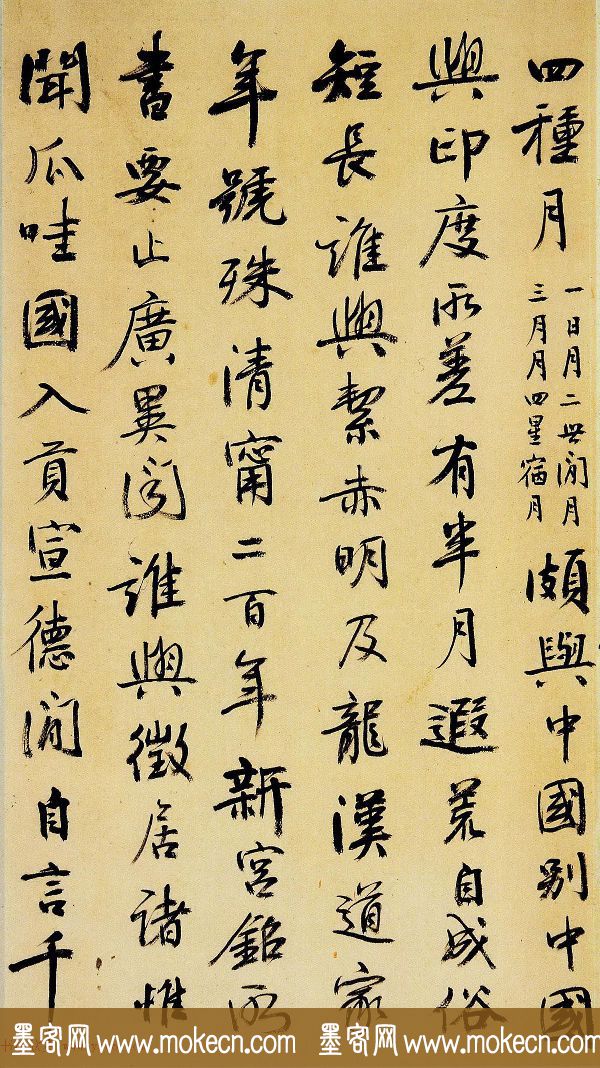 四種月
一日月二世間月
三月月四星宿月
頗與中國别中國
與印度所差有半月遐荒自成俗
短長誰與絜赤明及龍漢道家
年號殊清甯二百年新宮銘所
書要止廣異聞誰與徵居諸惟
聞瓜哇國入貢宣德間自言千
墨客网 www.mokecn.com 墨客网 www.mokecn.com